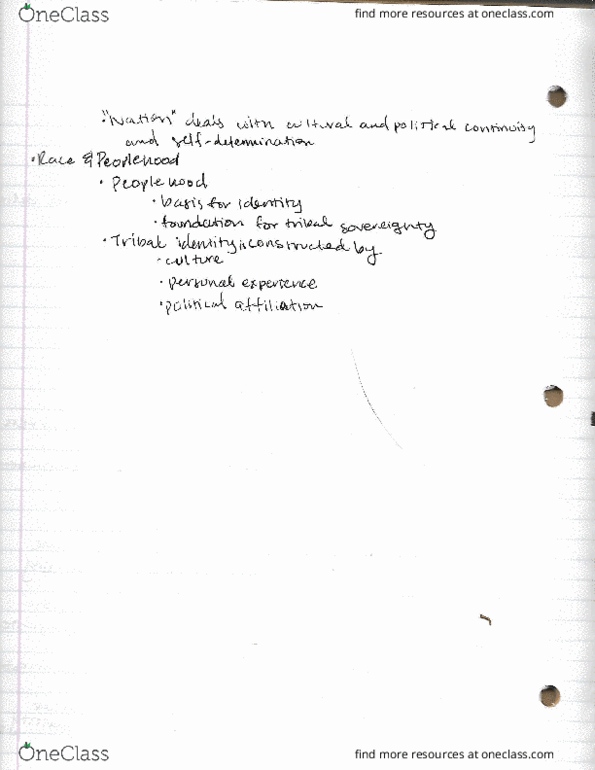 OneClass
find more resources at oneclass.com
• "Nation" deals with cultural and political continuity
and self-determination
• Race & Peoplehood
• Peoplehood
• basis for identity
• foundation for tribal sovereignty
• Tribal identity is constructed by:
• culture
• personal experience
• political affiliation
OneClass
find more resources at oneclass.com